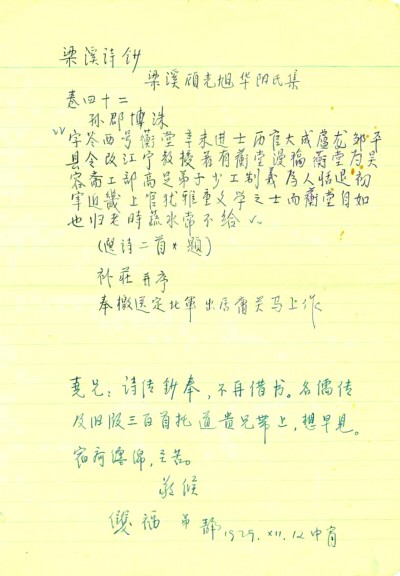 梁溪诗钞
梁溪顾光旭华阳氏集
卷四十二
孙郡博洙
字苓西号蘅堂辛未进士历官大成卢龙邹平
县令改江宁教授著有蘅堂漫稿蘅堂为吴
容斋工部高足弟子少工制义为人恬退初
宰迫畿上官犹雅重文学之士而蘅堂自如
也归老时蔬水常不给
(选诗二首*题)
补莊 并序
奉檄送定北軍出居庸关马上作
克兄:诗传钞奉,不再借书。名儒传
及旧版三百首托道贵兄带上,想早见。
宿疴
敬候
雙福 弟 静 1979.XII.12 中宵